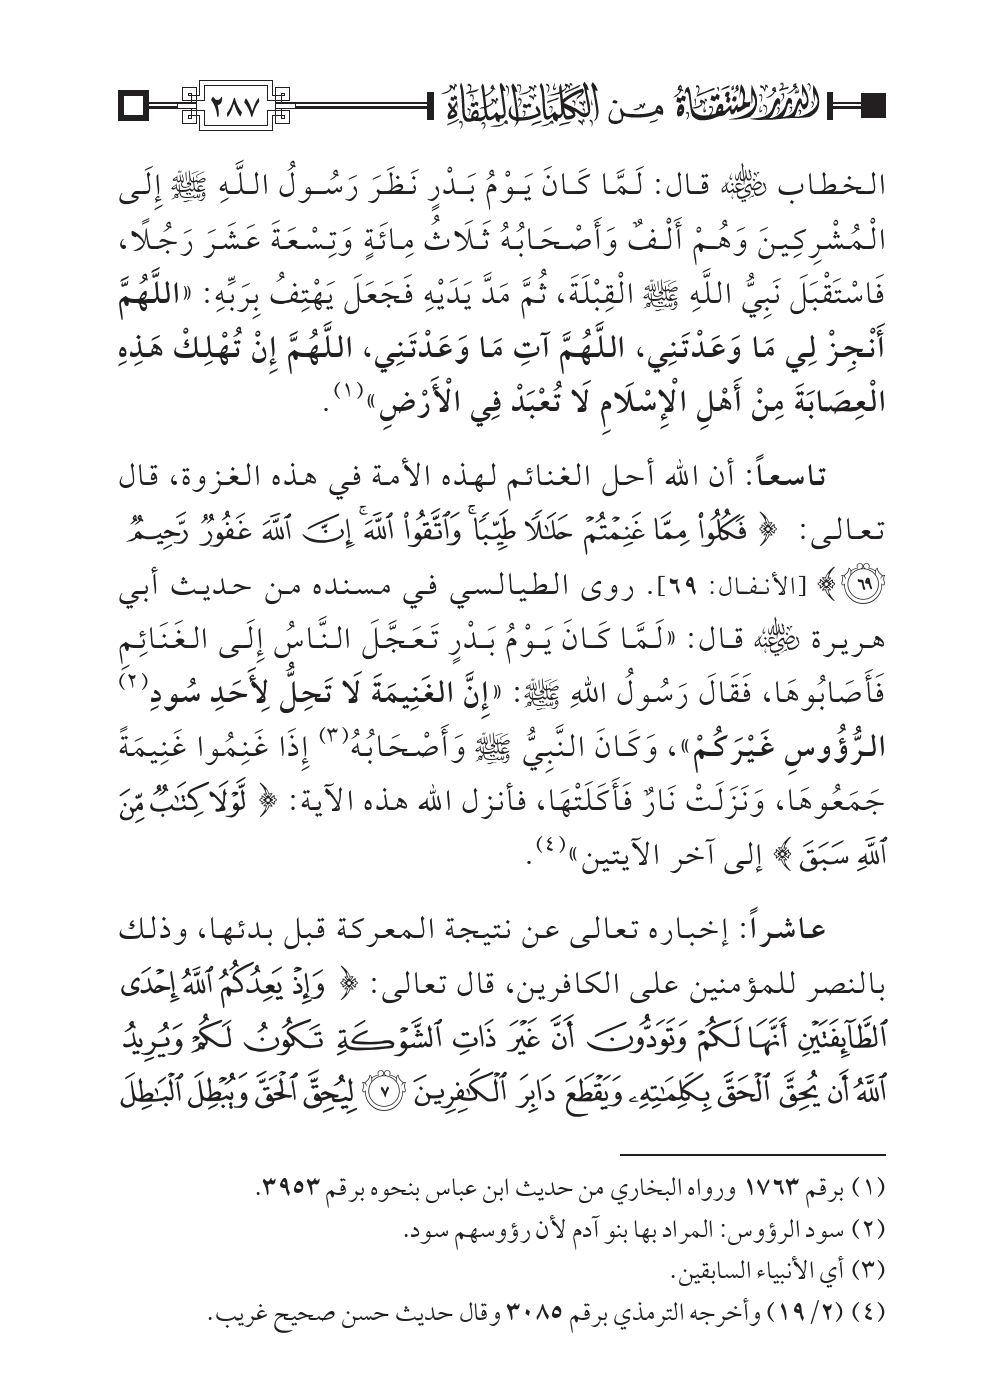 الدرر المنتقاة من الكلمات الملقاة ٢٨٧
الخطاب رضي الله عنه قال: لَمَّا كَانَ يَوْمُ بَدْرٍ نَظَرَ رَسُولُ اللَّهِ ﷺ إِلَى
الْمُشْرِكِينَ وَهُمْ أَلْفٌ وَأَصْحَابُهُ ثَلَاثُ مِائَةٍ وَتِسْعَةَ عَشَرَ رَجُلًا،
فَاسْتَقْبَلَ نَبِيُّ اللَّهِ ﷺ الْقِبْلَةَ، ثُمَّ مَدَّ يَدَيْهِ فَجَعَلَ يَهْتِفُ بِرَبِّهِ: «اللَّهُمَّ
أَنْجِزْ لِي مَا وَعَدْتَنِي، اللَّهُمَّ آتِ مَا وَعَدْتَنِي، اللَّهُمَّ إِنْ تُهْلِكْ هَذِهِ
الْعِصَابَةَ مِنْ أَهْلِ الْإِسْلَامِ لَا تُعْبَدْ فِي الْأَرْضِ»(١).
تاسعاً: أن الله أحل الغنائم لهذه الأمة في هذه الغزوة، قال
تعالى: ﴿ فَكُلُوا۟ مِمَّا غَنِمْتُمْ حَلَٰلًا طَيِّبًا ۚ وَٱتَّقُوا۟ ٱللَّهَ ۚ إِنَّ ٱللَّهَ غَفُورٌ رَّحِيمٌ
٦٩ ﴾ [الأنفال: ٦٩]. روى الطيالسي في مسنده من حديث أبي
هريرة رضي الله عنه قال: «لَمَّا كَانَ يَوْمُ بَدْرٍ تَعَجَّلَ النَّاسُ إِلَى الغَنَائِمِ
فَأَصَابُوهَا، فَقَالَ رَسُولُ اللهِ ﷺ: «إِنَّ الغَنِيمَةَ لَا تَحِلُّ لِأَحَدِ سُودِ(٢)
الرُّؤُوسِ غَيْرَكُمْ»، وَكَانَ النَّبِيُّ ﷺ وَأَصْحَابُهُ(٣) إِذَا غَنِمُوا غَنِيمَةً
جَمَعُوهَا، وَنَزَلَتْ نَارٌ فَأَكَلَتْهَا، فأنزل الله هذه الآية: ﴿ لَّوْلَا كِتَٰبٌ مِّنَ
ٱللَّهِ سَبَقَ ﴾ إلى آخر الآيتين»(٤).
عاشراً: إخباره تعالى عن نتيجة المعركة قبل بدئها، وذلك
بالنصر للمؤمنين على الكافرين، قال تعالى: ﴿ وَإِذْ يَعِدُكُمُ ٱللَّهُ إِحْدَى
ٱلطَّآئِفَتَيْنِ أَنَّهَا لَكُمْ وَتَوَدُّونَ أَنَّ غَيْرَ ذَاتِ ٱلشَّوْكَةِ تَكُونُ لَكُمْ وَيُرِيدُ
ٱللَّهُ أَن يُحِقَّ ٱلْحَقَّ بِكَلِمَٰتِهِۦ وَيَقْطَعَ دَابِرَ ٱلْكَٰفِرِينَ ٧ لِيُحِقَّ ٱلْحَقَّ وَيُبْطِلَ ٱلْبَٰطِلَ
(١) برقم ١٧٦٣ ورواه البخاري من حديث ابن عباس بنحوه برقم ٣٩٥٣.
(٢) سود الرؤوس: المراد بها بنو آدم لأن رؤوسهم سود.
(٣) أي الأنبياء السابقين.
(٤) (٢/ ١٩) وأخرجه الترمذي برقم ٣٠٨٥ وقال حديث حسن صحيح غريب.